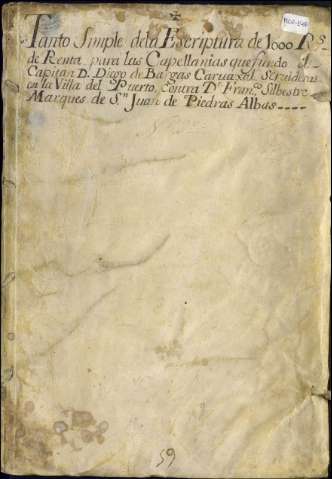 Tanto Simple de la Escriptura de 1000 Rs
de Renta para las Capellanias que fundo el
Capitan D. Diego de Bargas Caruajal Seruideras
en la Villa del Puerto, Contra Dn Franco Silbestre
Marques de Sn Juan de Piedras Albas
59